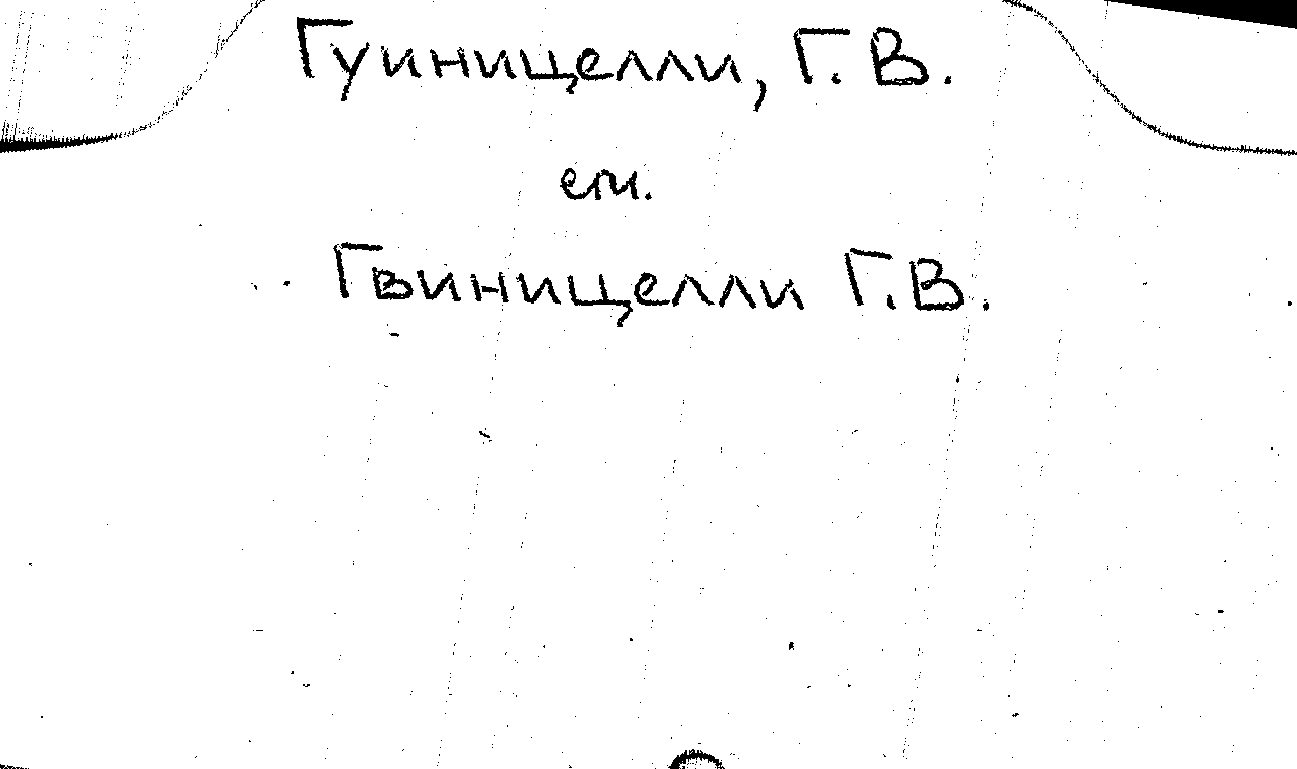 Гуиницелли, Г. В.
см.
Гвиницелли Г. В.